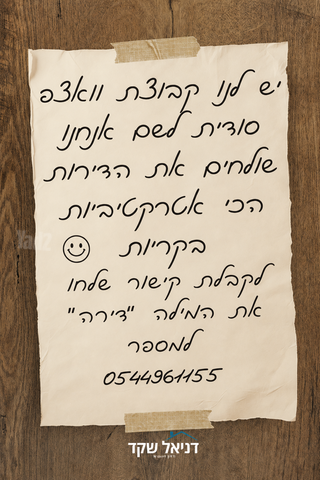 יש לנו קבוצת וואצפ
סודית לשם אנחנו
שולחים את הדירות
הכי אטרקטיביות
בקריות
לקבלת קישור שלחו
את המילה "דירה"
למספר
0544961155
דניאל שקד